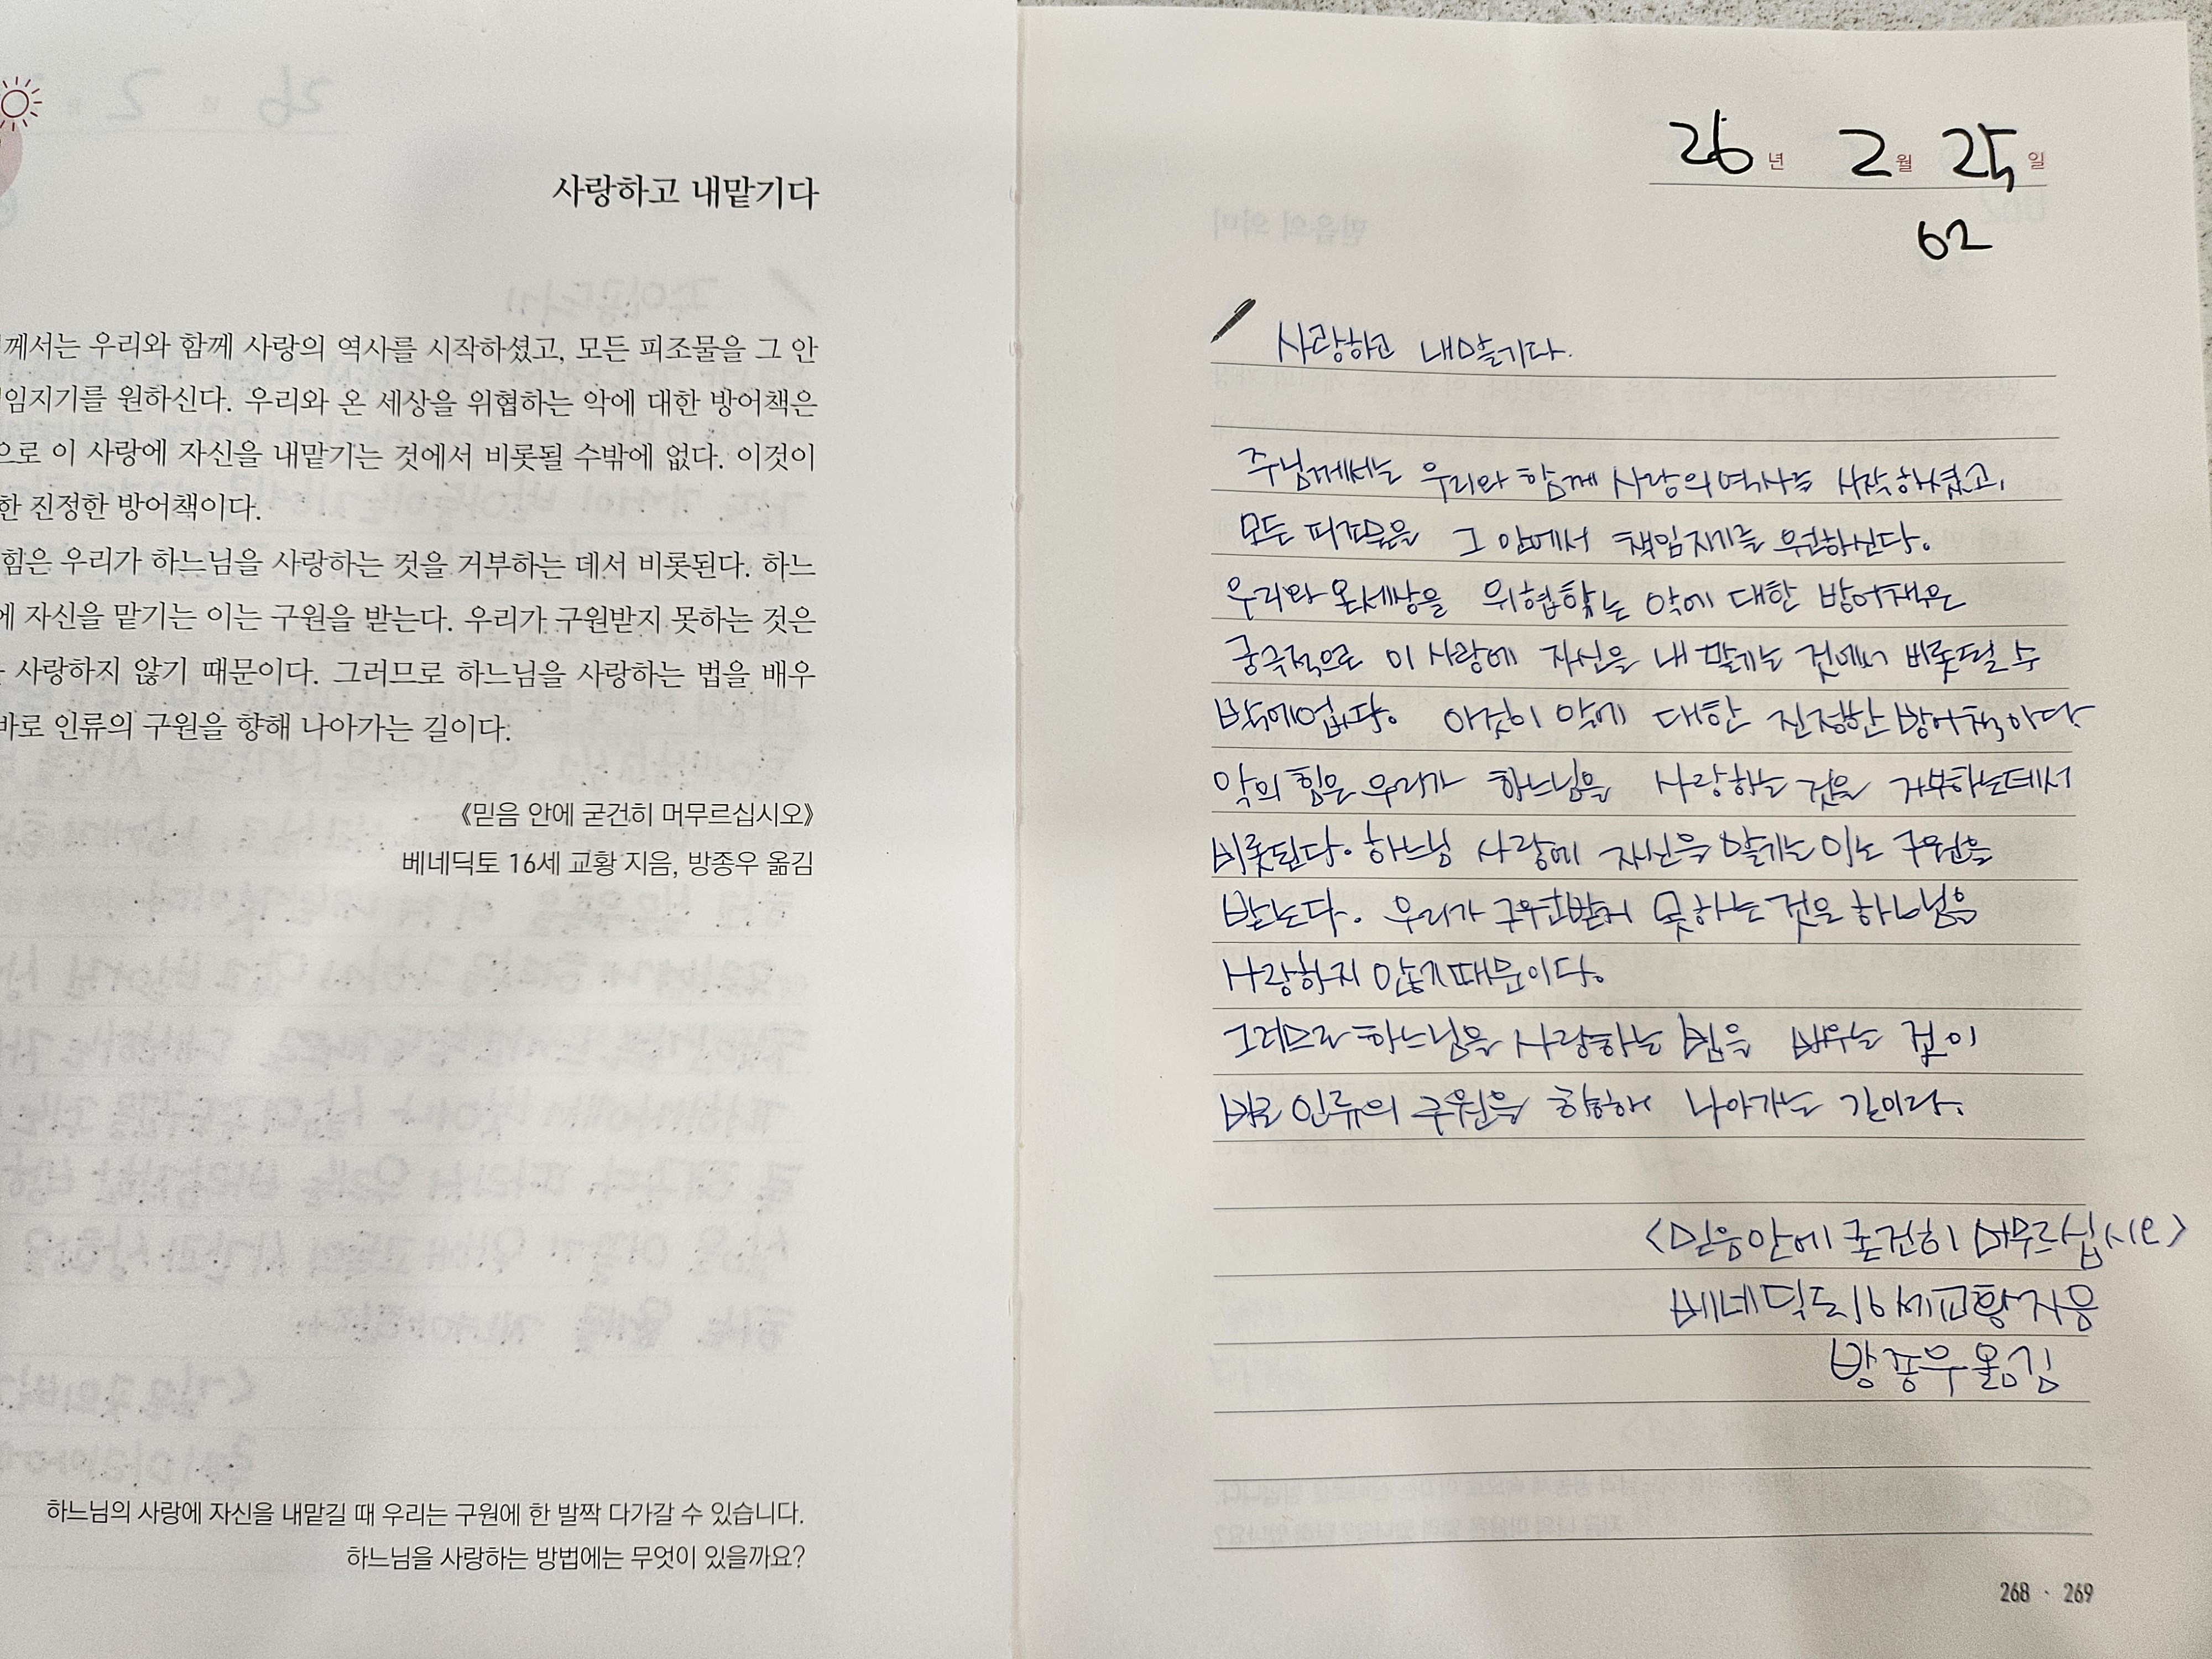 사랑하고 내맡기다
께서는 우리와 함께 사랑의 역사를 시작하셨고, 모든 피조물을 그 안
임지기를 원하신다. 우리와 온 세상을 위협하는 악에 대한 방어책은
으로 이 사랑에 자신을 내맡기는 것에서 비롯될 수밖에 없다. 이것이
한 진정한 방어책이다.
힘은 우리가 하느님을 사랑하는 것을 거부하는 데서 비롯된다. 하느
에 자신을 맡기는 이는 구원을 받는다. 우리가 구원받지 못하는 것은
사랑하지 않기 때문이다. 그러므로 하느님을 사랑하는 법을 배우
바로 인류의 구원을 향해 나아가는 길이다.
《믿음 안에 굳건히 머무르십시오》
베네딕토 16세 교황 지음, 방종우 옮김
하느님의 사랑에 자신을 내맡길 때 우리는 구원에 한 발짝 다가갈 수 있습니다.
하느님을 사랑하는 방법에는 무엇이 있을까요?
26년 2월 25일
62
사랑하고 내맡기다.
주님께서는 우리와 함께 사랑의 역사를 시작하셨고,
모든 피조물을 그 안에서 책임지기를 원하신다.
우리와 온세상을 위협하는 악에 대한 방어책은
궁극적으로 이 사랑에 자신을 내맡기는 것에서 비롯될 수
밖에없다. 이것이 악에 대한 진정한 방어책이다
악의 힘은 우리가 하느님을 사랑하는 것을 거부하는데서
비롯된다. 하느님 사랑에 자신을 맡기는 이는 구원을
받는다. 우리가 구원받지 못하는 것은 하느님을
사랑하지 않기때문이다.
그러므로 하느님을 사랑하는 법을 배우는 것이
바로 인류의 구원을 향해 나아가는 길이다.
<믿음안에 굳건히 머무르십시오>
베네딕토16세교황지음
방종우옮김
268 · 269